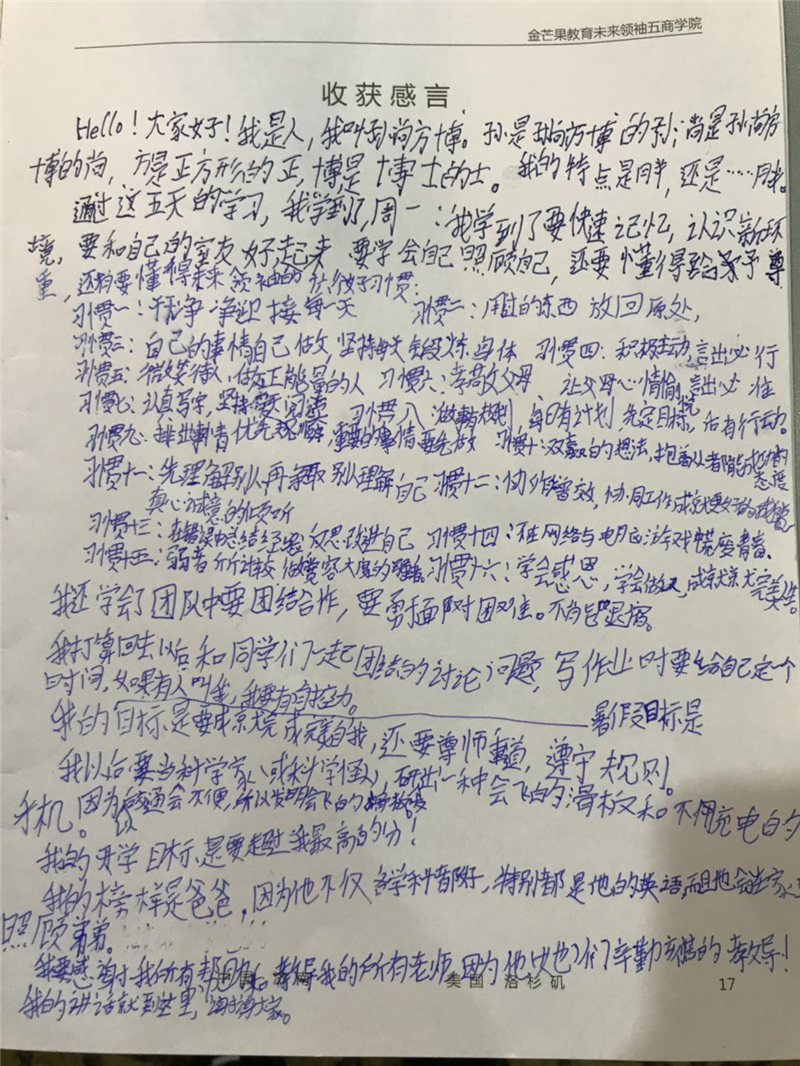 金芒果教育未来领袖五商学院
收获感言
Hello！大家好！我是人，我叫孙尚方博。孙是孙尚方博的孙；尚是孙尚方
博的尚，方是正方形的正，博是博士的士。我的特点是胖，还是……胖。
通过这五天的学习，我学到了，周一：我学到了要快速记忆，认识新环
境，要和自己的室友好起来，要学会自己照顾自己，还要懂得给予尊
重，还要懂得未来领袖的好习惯：
习惯一：干净净迎接每一天 习惯二：用过的东西放回原处，
习惯三：自己的事情自己做，坚持每天锻炼身体 习惯四：积极主动，言出必行
习惯五：微笑待人，做个正能量的人 习惯六：孝敬父母，让父母心情愉
习惯七：认真写字，坚持每天阅读 习惯八：做事有规划，每日有计划 先定目标，后有行动。
习惯九：优先 重要的事情要先做 习惯十：双赢的想法，抱着从者能成功的态度
习惯十一：先理解别人再争取别人理解自己 习惯十二：协作增效，协同工作成就更好的
真心诚意的倾听
习惯十三：在错误中总结经验 反思改进自己 习惯十四：不在网络与电脑游戏中荒废青春。
习惯十五：弱者斤斤计较 做宽容大度的强者 习惯十六：学会感恩，学会做人，成就完美
我还学会了团队中要团结合作，要勇于面对困难。
我打算回去以后和同学们一起团结的讨论问题，写作业时要给自己定个
时间，如果有人叫我，我要有自控力。
我的目标是要成就完美自我，还要尊师重道，遵守规则。
暑假目标是
我以后要当科学家（或科学怪人），研出一种会飞的滑板和不用充电的
手机。因为交通会不便，所以发明会飞的滑板
我的开学目标是要超过我最高的分！
我的榜样是爸爸，因为他不仅各学科都好，特别是他的英语，而且他会在家
照顾弟弟。
我要感谢我所有帮助和教导我的所有老师，因为他们辛勤的教导！
美国 洛杉矶
17
我的讲话就到这里，谢谢大家。